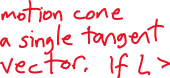 motion cone
a single tangent
vector. If L >